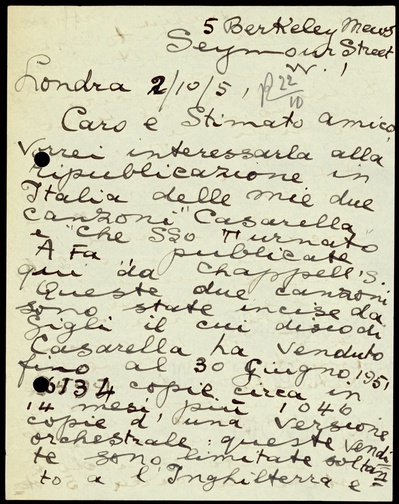 5 Berkeley Mews
Seymour Street
W. 1
Londra 2/10/51 R 22/10
Caro e Stimato amico,
Vorrei interessarla alla
ripubblicazione in
Italia delle mie due
canzoni "Casarella"
e "Che sso Turnato
A Fa publicate
qui da Chappell's.
Queste due canzoni
sono state incise da
Gigli il cui disco di
Casarella ha venduto
fino al 30 Giugno 1951
6134 copie circa in
14 mesi più 1046
copie d'una versione
orchestrale: queste vendi
te sono limitate soltan
to a l'Inghilterra e